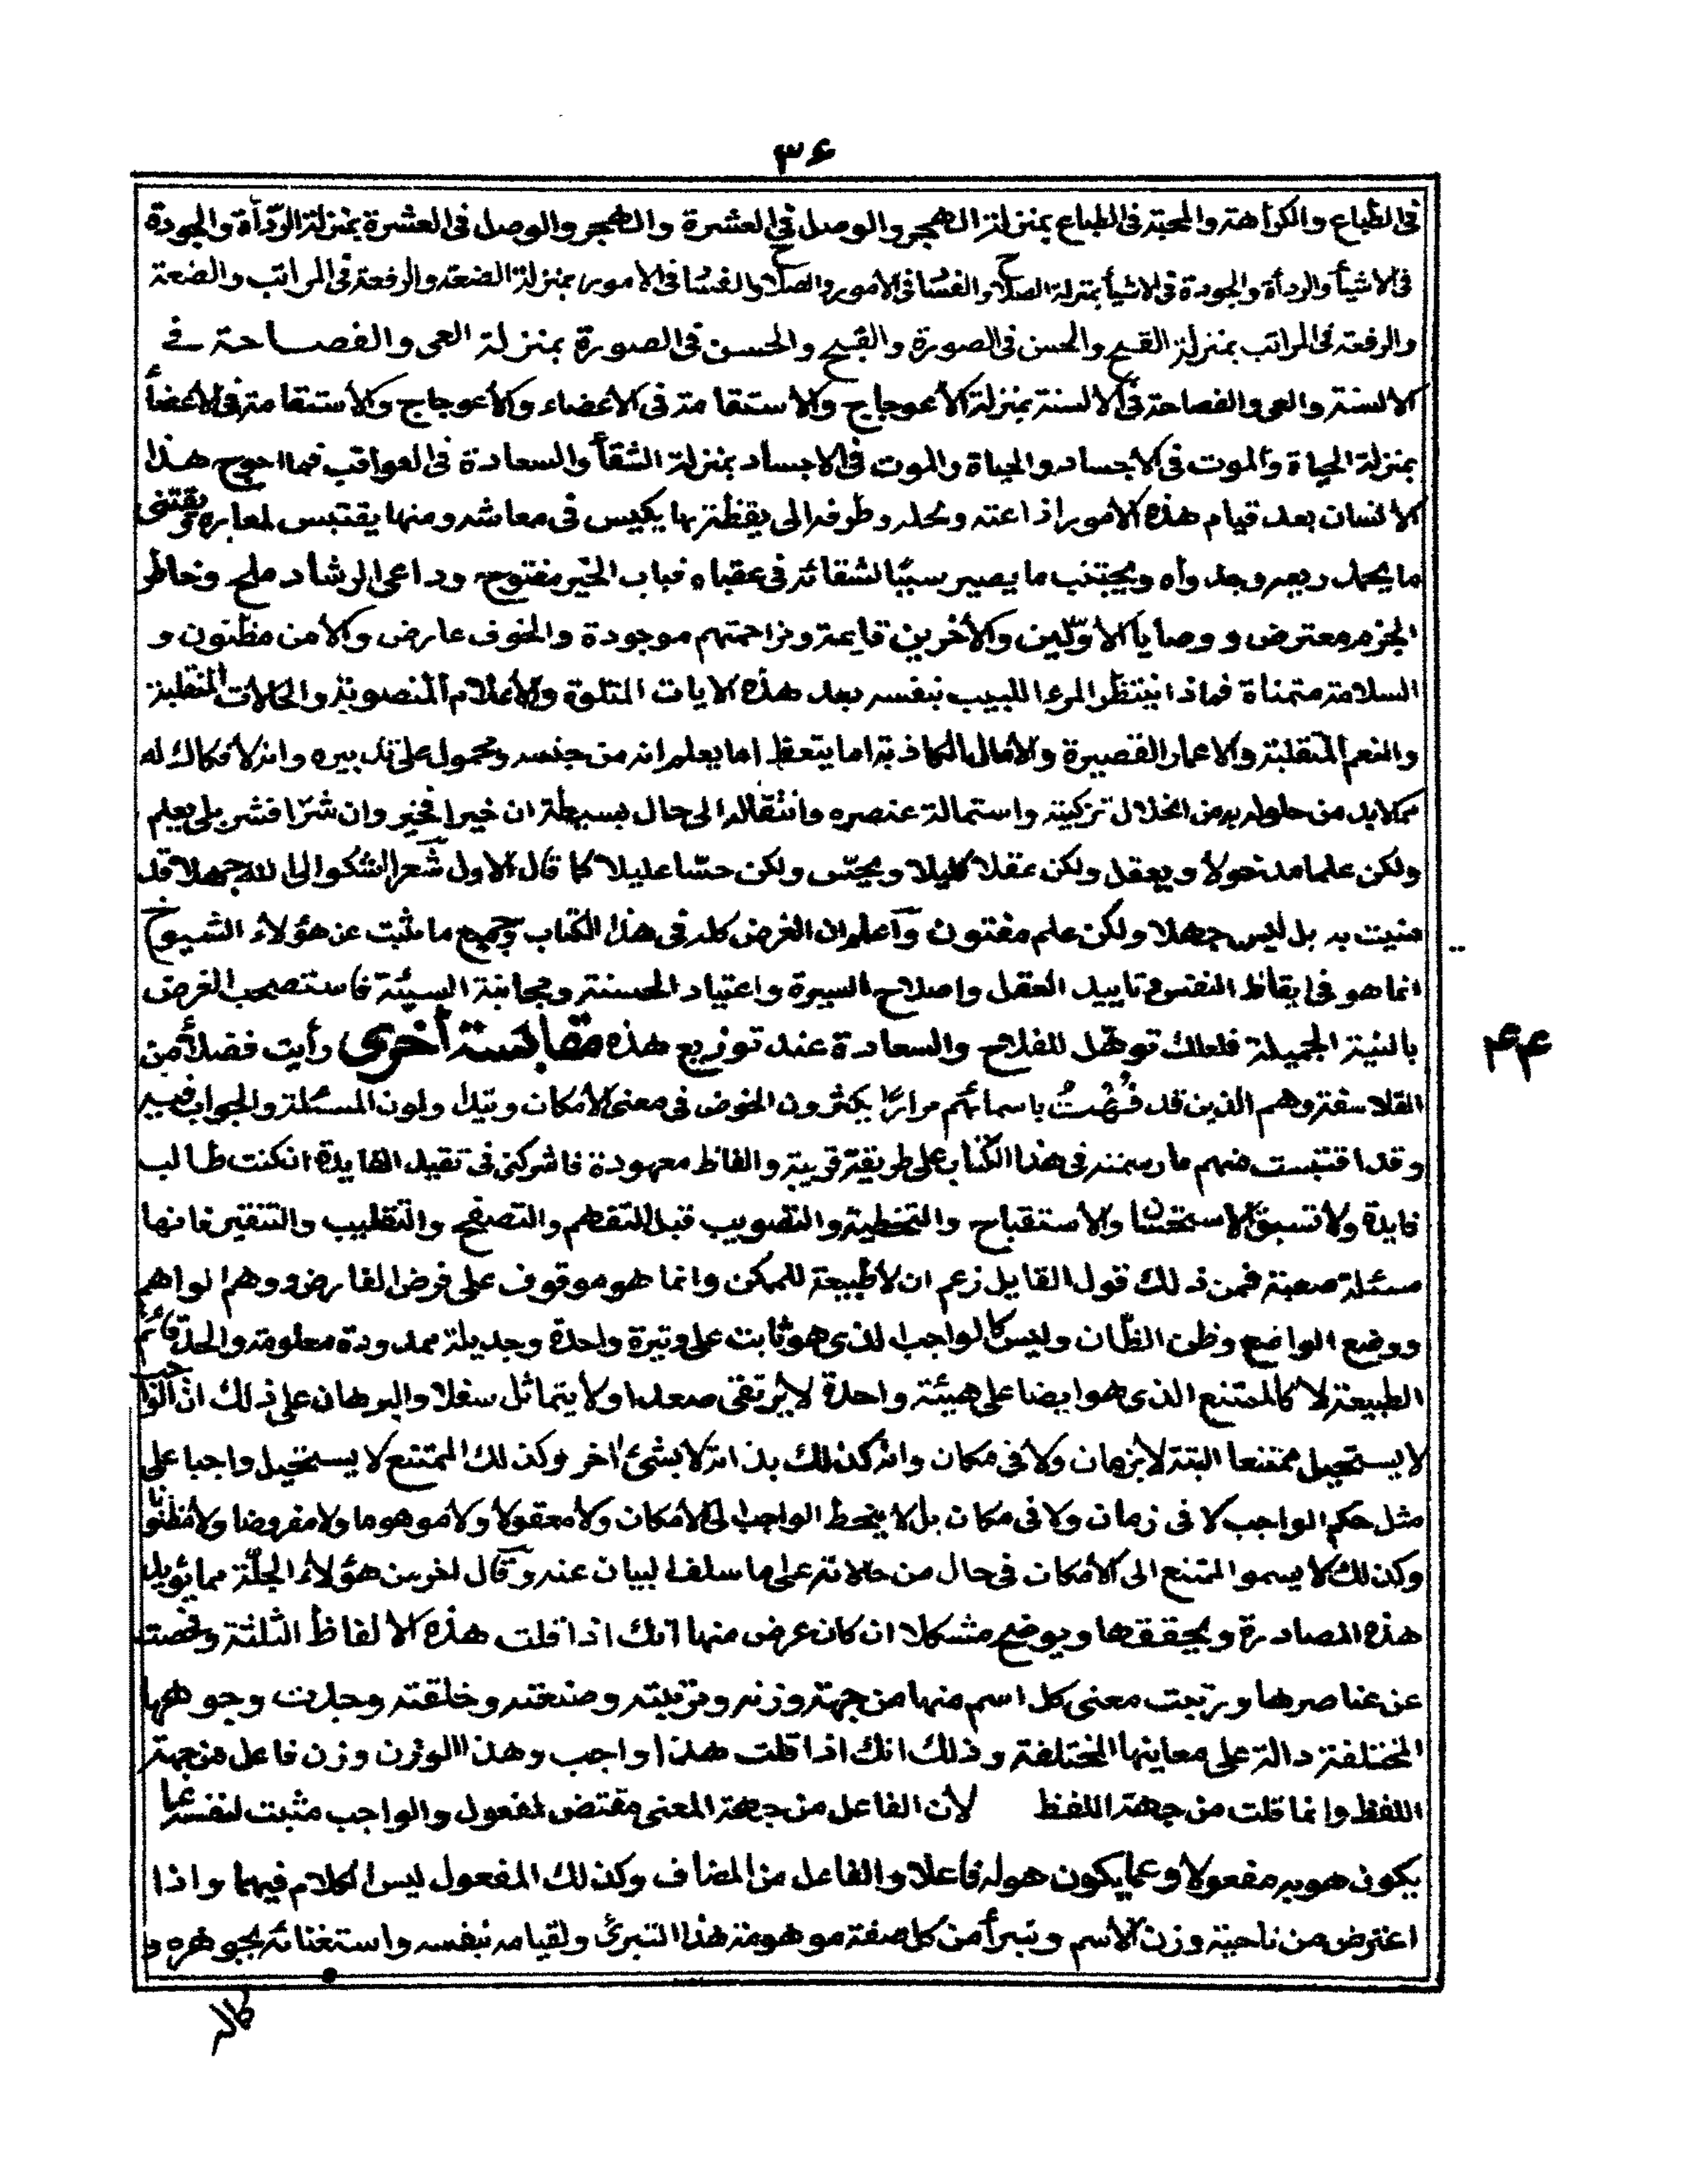 ٣٤
فى الطباع والكراهة والمحبة فى الطباع بمنزلة الهجر والوصل فى العشرة والهجر والوصل فى العشرة بمنزلة الردأة والجودة
فى الاشيأ والردأة والجودة فى الاشيأ بمنزلة الصلاح والفسا فى الامور والصلاح والفسا فى الامور بمنزلة الضعة والرفعة فى المراتب والضعة
والرفعة فى المراتب بمنزلة القبح والحسن فى الصورة والقبح والحسن فى الصورة بمنزلة العى والفصاحة فے
الالسنة والعى والفصاحة فى الالسنة بمنزلة الأعوجاج والاستقامة فى الاعضاء والأعوجاج والأستقامة فى الأعضأ
بمنزلة الحياة والموت فى الأجساد والحياة والموت فى الاجساد بمنزلة الشقأ والسعادة فى العواقب فما احوج هذا
الانسان بعد قيام هذه الامور اذا عنه ومحله وطرفه الى يقظة بها يكيس فى معاشه ومنها يقتبس لمعاده ويقتنى
ما يحمد ريعه وجدواه ويجتنب ما يصير سببًا لشقائه فى عقباه فباب الخير مفتوح وداعى الرشاد ملح وخاطر
الحزم معترض ووصايا الأوّلين والأخرين قايمة ومزاحمتهم موجودة والخوف عارض والامن مظنون و
السلامة متمناة فماذا ينتظر المرء اللبيب بنفسه بعد هذه الايات المتلوة والأعلام المنصوبة والحالات المنقلبة
والنعم المتقلبة والاعمار القصيرة والأمال الكاذبة اما يتعظ اما يعلم انه من جنسه ومحمول على تدبيره وانه لا فكاك له
مما لابد من حلوله به من انحلال تركيبة واستمالة عنصره وانتقاله الى حال بسيطة ان خيرا فخير وان شرّا فشر بلى يعلم
ولكن علما مدخولا ويعقل ولكن عقلا كليلا ويحسّ ولكن حسّا عليلا كما قال الاول شعر اشكو الى الله جهلا قد
منيت به بل ليس جهلا ولكن علم مفتون واعلم ان الغرض كله فى هذا الكتاب وجميع ما يثبت عن هؤلاء الشيوخ
انما هو فى ايقاظ النفس وتاييد العقل واصلاح السيرة واعتياد الحسنة ومجانبة السيئة فاستصحب الغرض
بالنية الجميلة فلعلك توهّل للفلاح والسعادة عند توزيع هذه مقابسة أخرى رأيت فضلأ من
٤٤
الفلاسفة وهم الذين قد فُهْتُ باسمائهم مرارًا يكثرون الخوض فى معنى الأمكان ويتداولون المسئلة والجواب فيه
وقد اقتبست منهم ما رسمته فى هذا الكتاب على طريقة قريبة والفاظ معهودة فاشركنى فى تقييد الفايدة ان كنت طالب
فايدة ولا تسبق الاستحسان والاستقباح والتخطية والتصويب قبل التفهم والتصفح والتقليب والتنقير فانها
مسئلة صعبة فمن ذلك قول القايل زعم ان لا طبيعة للممكن وانما هو موقوف على فرض الفارض ووهم الواهم
ووضع الواضع وظن الظان وليس كالواجب الذى هو ثابت على وتيرة واحدة وجديلة ممدودة معلومة والحد قائم
الطبيعة لا كالممتنع الذى هو ايضا على هيئة واحدة لا يرتقى صعدا ولا يتماثل سفلا والبرهان على ذلك ان الواجب
لا يستحيل ممتنعا البتة لا بزمان ولا فى مكان وانه كذلك بذاته لا بشئ اخر وكذلك الممتنع لا يستحيل واجبا على
مثل حكم الواجب لا فى زمان ولا فى مكان بل لا ينحط الواجب الى الأمكان ولا معقولا ولا موهوما ولا مفروضا ولا مظنونا
وكذلك لا يسموا الممتنع الى الأمكان فى حال من حالاته على ما سلف البيان عنه وقال اخر من هؤلاء الجلّة مما يؤيد
هذه المصادرة ويحققها ويوضح مشكلا ان كان عرض منها انك اذا قلت هذه الالفاظ الثلثة وفحصت
عن عناصرها ورتبت معنى كل اسم منها من جهة وزنه وترتيبه وصنعته وخلقته وجدت وجوهها
المختلفة دالة على معاينها المختلفة وذلك انك اذا قلت هذا واجب وهذا الوزن وزن فاعل من جهة
اللفظ وانما قلت من جهة اللفظ لأن الفاعل من جهة المعنى مقتض لمفعول والواجب مثبت لنفسه عما
يكون هو به مفعولا وعما يكون هو له فاعلا والفاعل من المضاف وكذلك المفعول ليس الكلام فيهما واذا
اعترض من ناحية وزن الأسم وتبرأ من كل صفة موهومة هذا التبرئ ولقيامه بنفسه واستغنائه بجوهره و